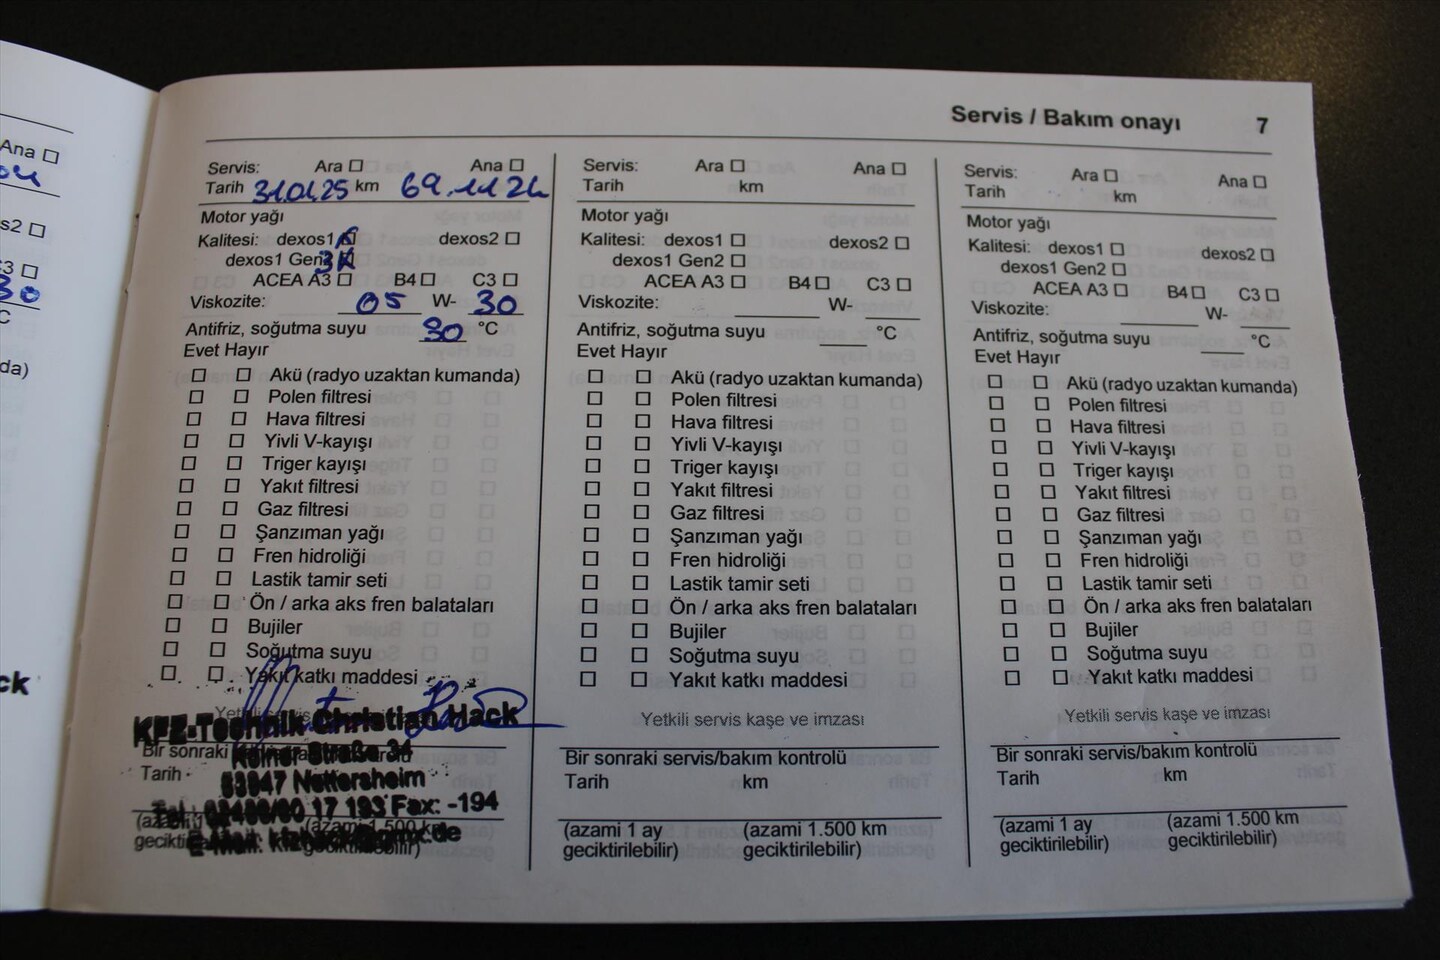 Servis / Bakım onayı 7
Servis: Ara Ana
Tarih 31.01.25 km
Motor yağı
Kalitesi: dexos1 dexos2
dexos1 Gen
ACEA A3 B4 C3
Viskozite: 05 W- 30
Antifriz, soğutma suyu 30 °C
Evet Hayır
Akü (radyo uzaktan kumanda)
Polen filtresi
Hava filtresi
Yivli V-kayışı
Triger kayışı
Yakıt filtresi
Gaz filtresi
Şanzıman yağı
Fren hidroliği
Lastik tamir seti
Ön / arka aks fren balataları
Bujiler
Soğutma suyu
Yakıt katkı maddesi
KFZ-Technik Christian Hack
Bir sonraki
Kölner Straße 34
Tarih
53947 Nettersheim
17 193 Fax: -194
E-Mail:
Servis: Ara Ana
Tarih km
Motor yağı
Kalitesi: dexos1 dexos2
dexos1 Gen2
ACEA A3 B4 C3
Viskozite: W-
Antifriz, soğutma suyu °C
Evet Hayır
Akü (radyo uzaktan kumanda)
Polen filtresi
Hava filtresi
Yivli V-kayışı
Triger kayışı
Yakıt filtresi
Gaz filtresi
Şanzıman yağı
Fren hidroliği
Lastik tamir seti
Ön / arka aks fren balataları
Bujiler
Soğutma suyu
Yakıt katkı maddesi
Yetkili servis kaşe ve imzası
Bir sonraki servis/bakım kontrolü
Tarih km
(azami 1 ay (azami 1.500 km
geciktirilebilir) geciktirilebilir)
Servis: Ara Ana
Tarih km
Motor yağı
Kalitesi: dexos1 dexos2
dexos1 Gen2
ACEA A3 B4 C3
Viskozite: W-
Antifriz, soğutma suyu °C
Evet Hayır
Akü (radyo uzaktan kumanda)
Polen filtresi
Hava filtresi
Yivli V-kayışı
Triger kayışı
Yakıt filtresi
Gaz filtresi
Şanzıman yağı
Fren hidroliği
Lastik tamir seti
Ön / arka aks fren balataları
Bujiler
Soğutma suyu
Yakıt katkı maddesi
Yetkili servis kaşe ve imzası
Bir sonraki servis/bakım kontrolü
Tarih km
(azami 1 ay (azami 1.500 km
geciktirilebilir) geciktirilebilir)